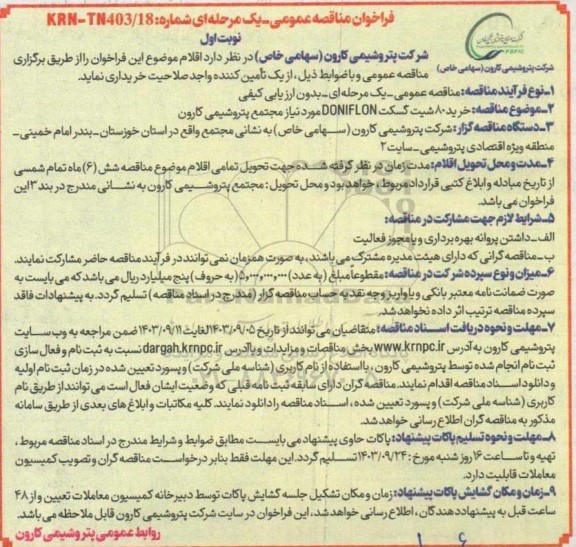 فراخوان مناقصه عمومی-یک مرحله ای شماره: KRN-TN403/18
نوبت اول
شرکت پتروشیمی کارون (سهامی خاص)
شرکت پتروشیمی کارون (سهامی خاص) در نظر دارد اقلام موضوع این فراخوان را از طریق برگزاری
مناقصه عمومی و با ضوابط ذیل، از یک تأمین کننده واجد صلاحیت خریداری نماید.
۱-نوع فرآیند مناقصه: مناقصه عمومی-یک مرحله ای-بدون ارزیابی کیفی
۲-موضوع مناقصه: خرید ۸۰ شیت گسکت DONIFLON مورد نیاز مجتمع پتروشیمی کارون
۳-دستگاه مناقصه گزار: شرکت پتروشیمی کارون (سهامی خاص) به نشانی مجتمع واقع در استان خوزستان-بندر امام خمینی-
منطقه ویژه اقتصادی پتروشیمی-سایت ۲
۴-مدت و محل تحویل اقلام: مدت زمان در نظر گرفته شده جهت تحویل تمامی اقلام موضوع مناقصه شش (۶) ماه تمام شمسی
از تاریخ مبادله و ابلاغ کتبی قرارداد مربوط، خواهد بود و محل تحویل: مجتمع پتروشیمی کارون به نشانی مندرج در بند ۳ این
فراخوان می باشد.
۵-شرایط لازم جهت مشارکت در مناقصه:
الف-داشتن پروانه بهره برداری و یا مجوز فعالیت
ب-مناقصه گرانی که دارای هیئت مدیره مشترک می باشند، به صورت همزمان نمی توانند در فرآیند مناقصه حاضر مشارکت نمایند.
۶-میزان و نوع سپرده شرکت در مناقصه: مقطوعاً مبلغ (به عدد) ۵,۰۰۰,۰۰۰,۰۰۰ (به حروف) پنج میلیارد ریال می باشد که می بایست به
صورت ضمانت نامه معتبر بانکی و یا واریز وجه نقد به حساب مناقصه گزار (مندرج در اسناد مناقصه) تسلیم گردد. به پیشنهادات فاقد
سپرده مناقصه ترتیب اثر داده نخواهد شد.
۷-مهلت و نحوه دریافت اسناد مناقصه: متقاضیان می توانند از تاریخ ۱۴۰۳/۰۹/۰۵ لغایت ۱۴۰۳/۰۹/۱۱ ضمن مراجعه به وب سایت
پتروشیمی کارون به آدرس www.krnpc.ir بخش مناقصات و مزایدات و یا آدرس dargah.krnpc.ir نسبت به ثبت نام و فعال سازی
ثبت نام انجام شده توسط پتروشیمی کارون، با استفاده از نام کاربری (شناسه ملی شرکت) و پسورد تعیین شده در زمان ثبت نام اولیه
و دانلود اسناد مناقصه اقدام نمایند. مناقصه گران دارای سابقه ثبت نامه قبلی که وضعیت ایشان فعال است می توانند از طریق نام
کاربری (شناسه ملی شرکت) و پسورد تعیین شده، اسناد مناقصه را دانلود نمایند. کلیه مکاتبات و ابلاغ های بعدی از طریق سامانه
مذکور به مناقصه گران اطلاع رسانی خواهد شد.
۸-مهلت و نحوه تسلیم پاکات پیشنهاد: پاکات حاوی پیشنهاد می بایست مطابق ضوابط و شرایط مندرج در اسناد مناقصه مربوط،
تهیه و تا ساعت ۱۶ روز شنبه مورخ: ۱۴۰۳/۰۹/۲۴ تسلیم گردد. این مهلت فقط بنابر درخواست مناقصه گران و تصویب کمیسیون
معاملات قابلیت دارد.
۹-زمان و مکان گشایش پاکات پیشنهاد: زمان و مکان تشکیل جلسه گشایش پاکات توسط دبیرخانه کمیسیون معاملات تعیین و از ۴۸
ساعت قبل به پیشنهاددهندگان، اطلاع رسانی خواهد شد، این فراخوان در سایت شرکت پتروشیمی کارون قابل ملاحظه می باشد.
روابط عمومی پتروشیمی کارون